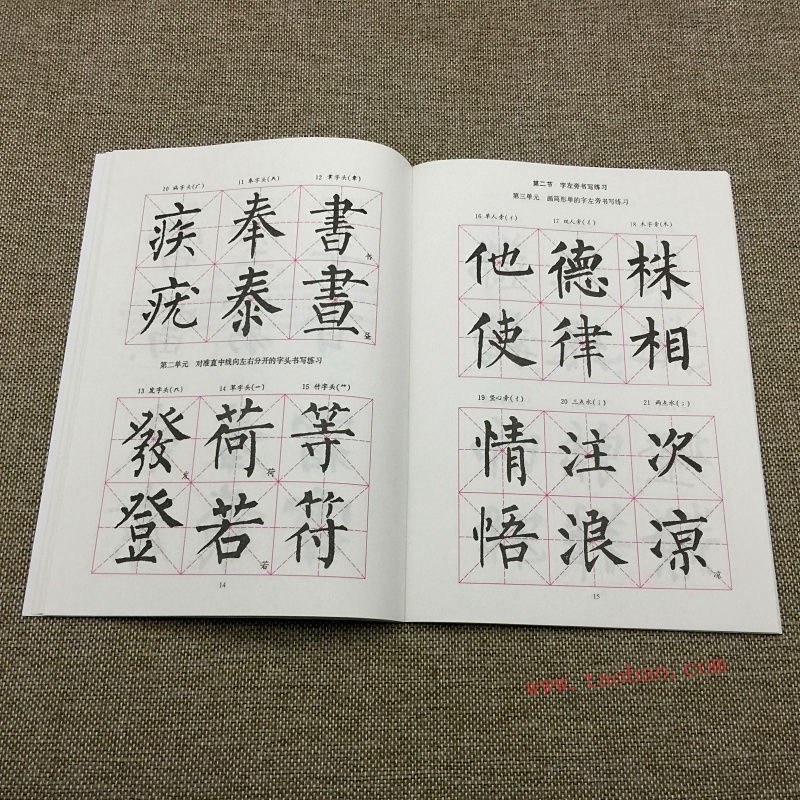 10 病字头(疒) 11 奉字头(𡗗) 12 書字头(⺻)
疾 奉 書 书
疣 泰 畫 昼
第二单元 对准直中线向左右分开的字头书写练习
13 发字头(癶) 14 草字头(艹) 15 竹字头(⺮)
發 荷 等
发 荷
登 若 符
若
14
第二节 字左旁书写练习
第三单元 画简形单的字左旁书写练习
16 单人旁(亻) 17 双人旁(彳) 18 木字旁(木)
他 德 株
使 律 相
19 竖心旁(忄) 20 三点水(氵) 21 两点水(冫)
情 注 次
悟 浪 凉
凉
15
www.tnobao.com